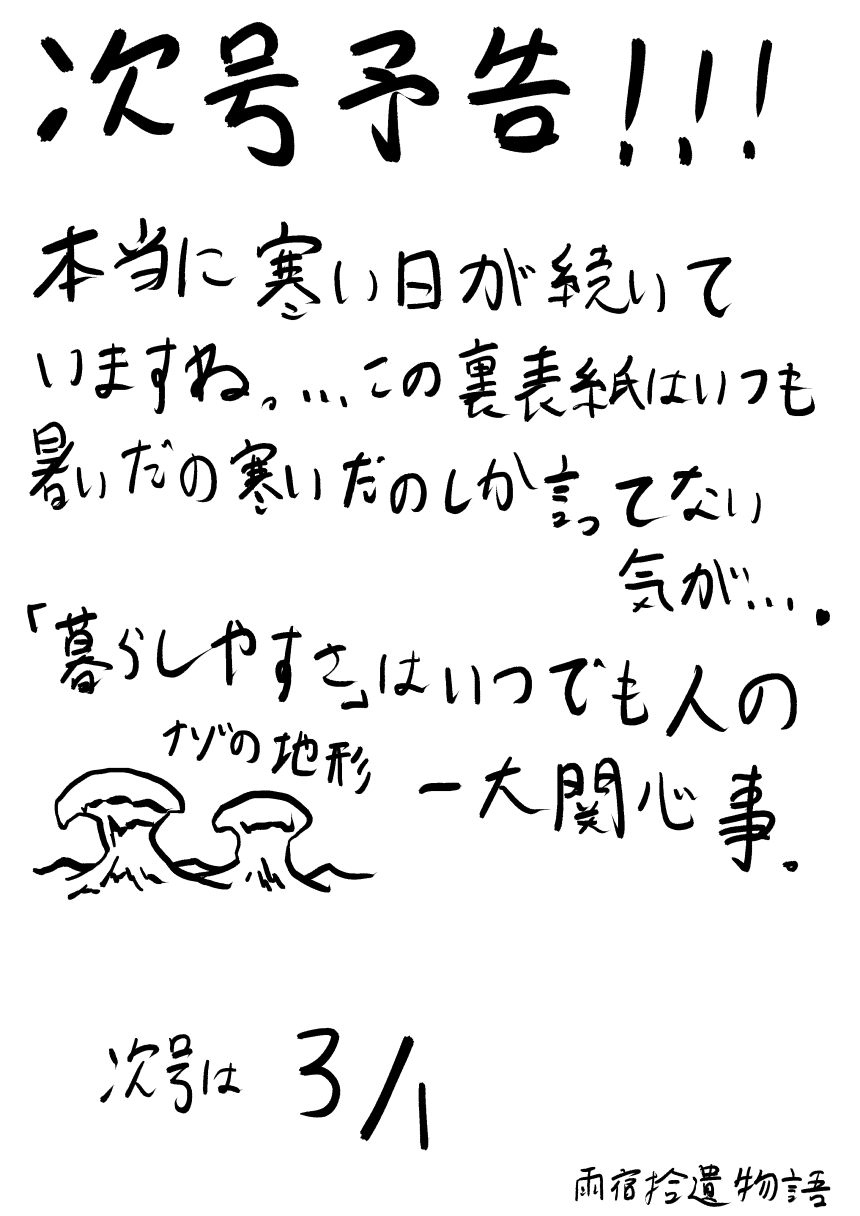 次号予告!!!
本当に寒い日が続いて
いますね。...この裏表紙はいつも
暑いだの寒いだのしか言ってない
気が...。
「暮らしやすさ」はいつでも人の
一大関心事。
ナゾの地形
次号は 3/1
雨宿拾遺物語